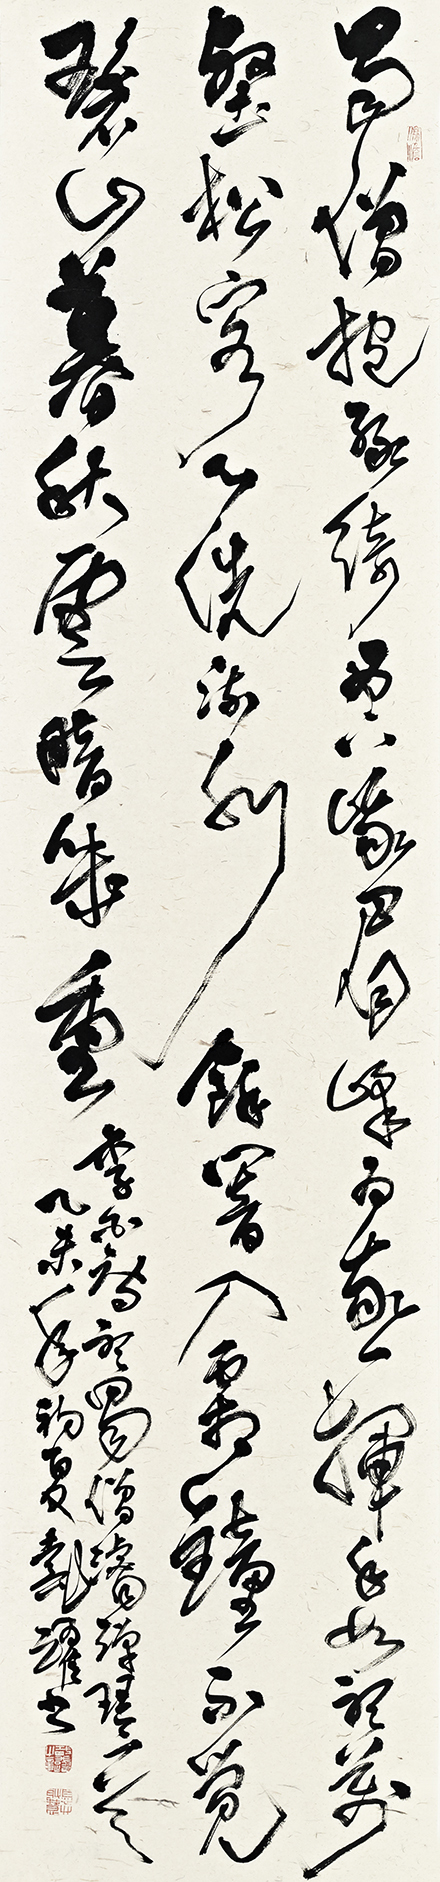 蜀僧抱綠綺西下峨眉峰為我一揮手如聽萬
壑松客心洗流水餘響入霜鐘不覺
碧山暮秋雲暗幾重
李白詩聽蜀僧濬彈琴一首
乙未年初夏躍書